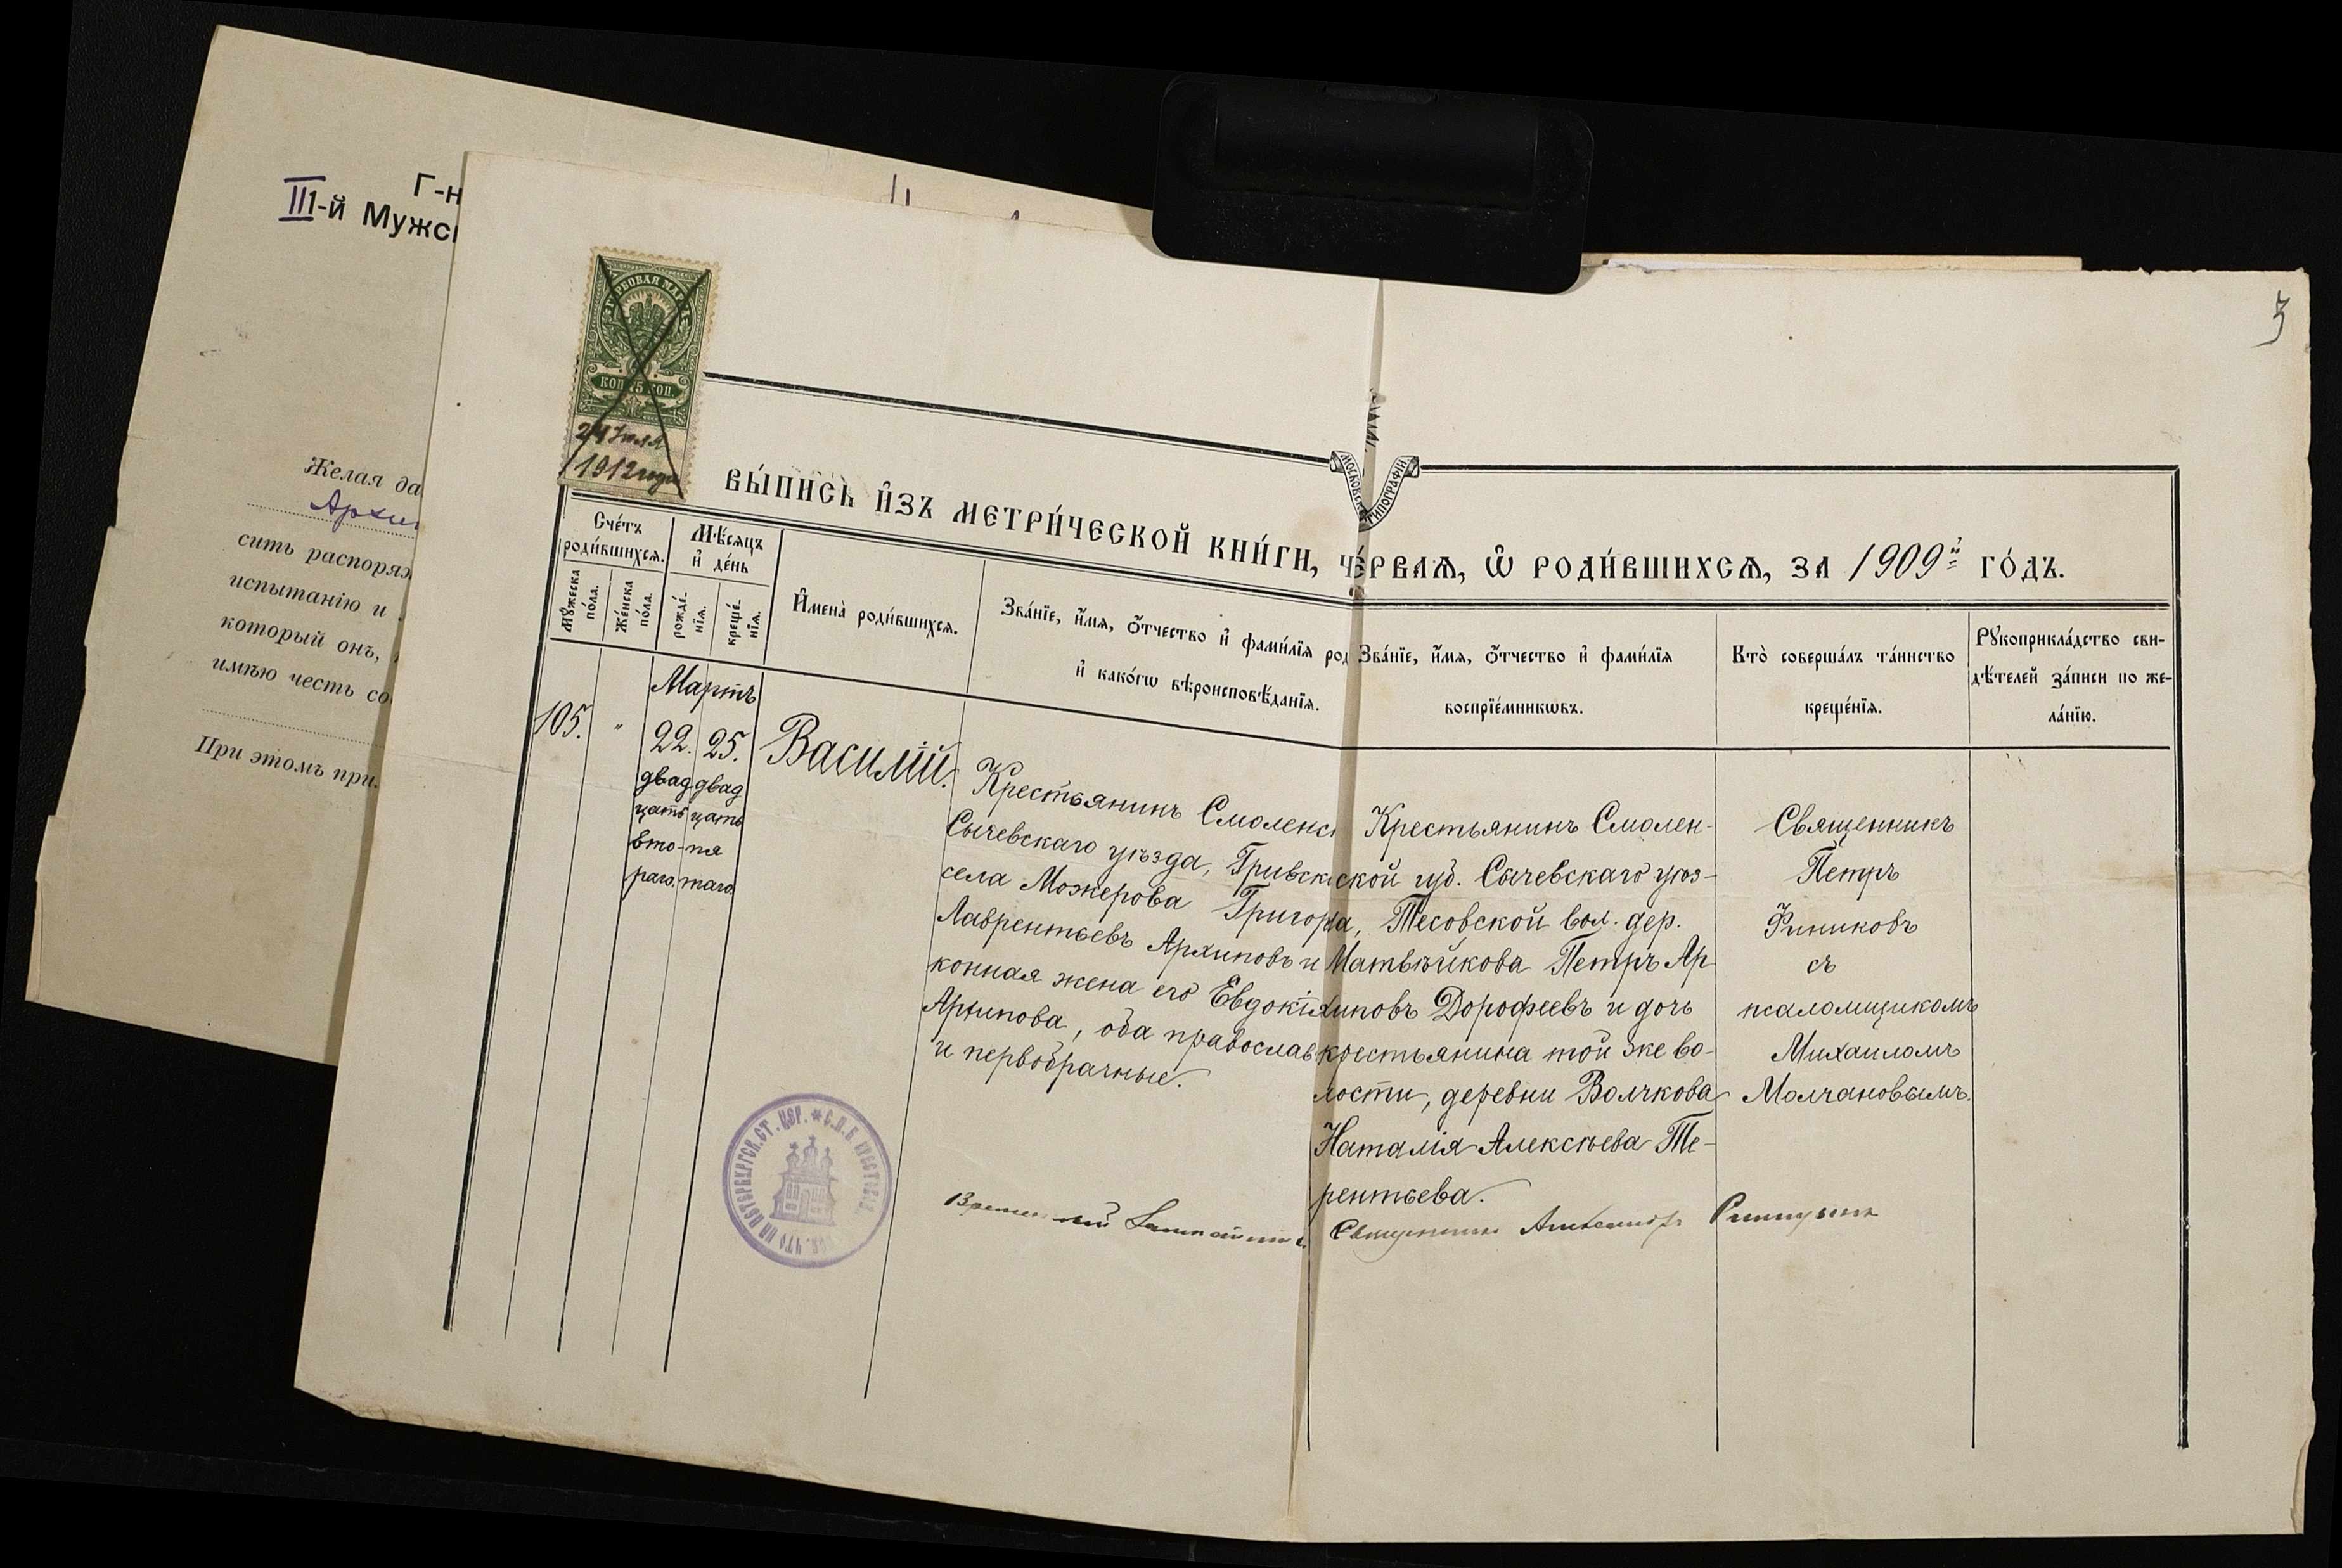 Г-н
III-й Мужс
Желая да
Архи
сить распоряж
испытанію и
который онъ,
имѣю честь со
При этомъ при
3
ГЕРБОВАЯ МАРКА
КОП 75 КОП
24 Іюля
1912 года
МОСКОВСК. ТИПОГРАФІИ
ВЫ́ПИСЬ И҆ЗЪ МЕТРИ́ЧЕСКОЙ КНИ́ГИ, ЧА́СТЬ ПЕ́РВАѦ, Ѡ҆ РОДИ́ВШИХСѦ, ЗА 1909й ГО́ДЪ.
Сче́тъ
роди́вшихсѧ.
Мꙋ́жеска
по́ла.
Же́нска
по́ла.
Мѣ́сѧцъ
и҆ де́нь
рожде́-
нїѧ.
креще́-
нїѧ.
И҆мена̀ роди́вшихсѧ.
Зва́нїе, и҆́мѧ, ѻ҆́тчество и҆ фами́лїѧ род
и҆ како́гѡ вѣроисповѣ́данїѧ.
Зва́нїе, и҆́мѧ, ѻ҆́тчество и҆ фами́лїѧ
воспрїе́мникѡвъ.
Кто̀ соверша́лъ та́инство
креще́нїѧ.
Рꙋкоприкла́дство сви-
дѣ́телей за́писи по же-
ла́нїю.
105.
"
Мартъ
22. 25.
двад двад
цать цать
вто- пя
раго. таго.
Василій.
Крестьянинъ Смоленс
Сычевскаго уѣзда, Гривск
села Можерова Григор
Лаврентьевъ Архиповъ и
конная жена его Евдокія
Архипова, оба православ
и первобрачные.
Крестьянинъ Смолен-
ской губ. Сычевскаго уѣз-
да, Тесовской вол. дер.
Матвѣйкова Петръ Ар
хиповъ Дорофеевъ и дочь
крестьянина той же во-
лости, деревни Волчкова
Наталія Алексѣева Те-
рентьева.
Священникъ
Петръ
Финиковъ
съ
псаломщикомъ
Михаиломъ
Молчановымъ.
Священникъ Александръ